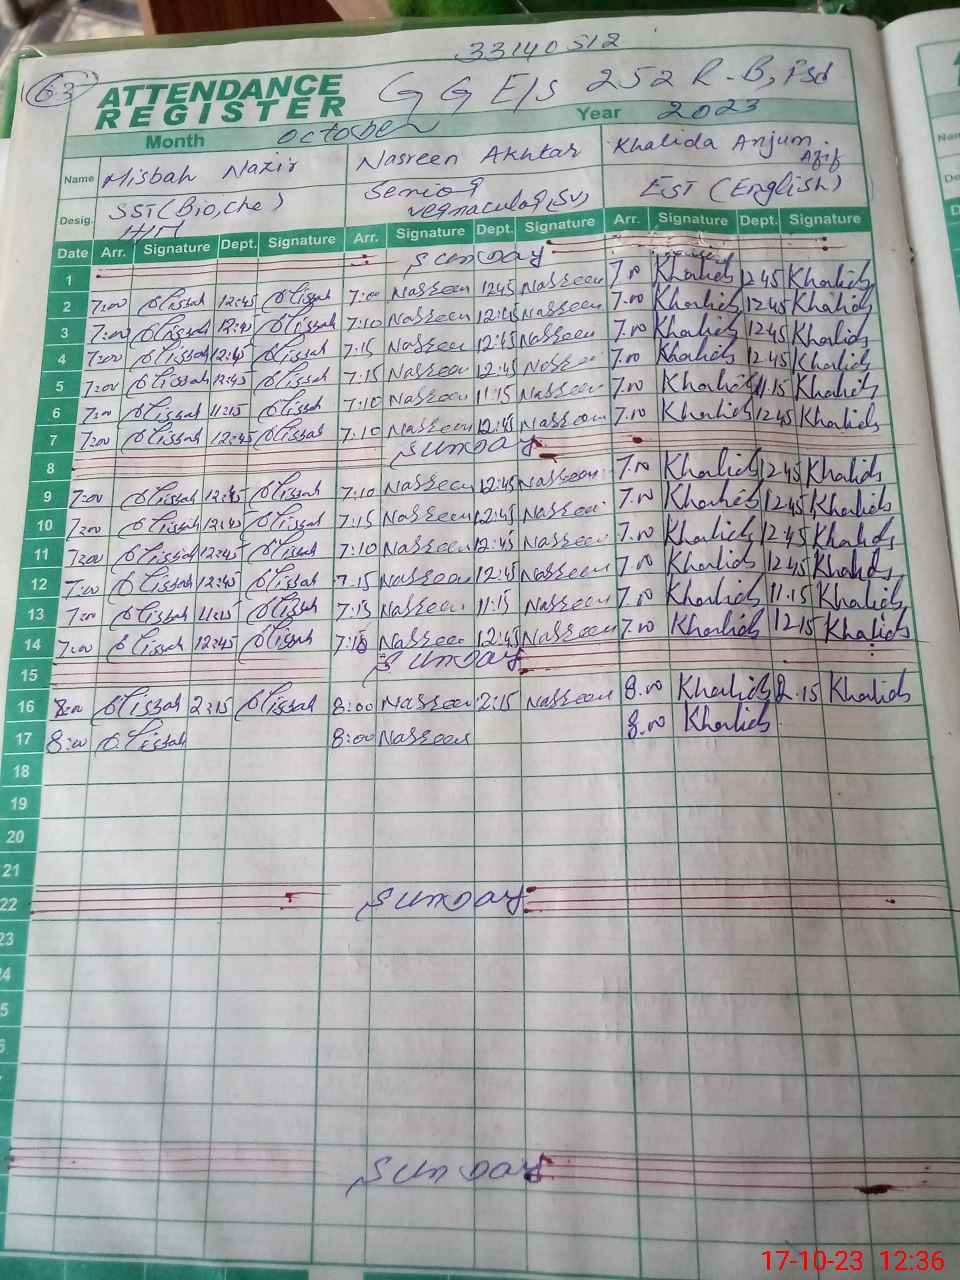 33140512
63 ATTENDANCE REGISTER G G E/S 252 R-B, Fsd
Month October Year 2023
Name Misbah Nazir Nasreen Akhtar Khalida Anjum
Desig. SST (Bio, Che) Senior vernacular (SV) EST (English)
HM
Date Arr. Signature Dept. Signature Arr. Signature Dept. Signature Arr. Signature Dept. Signature
1 Sunday
2 7:00 Misbah 12:45 Misbah 7:00 Nasreen 12:45 Nasreen 7.00 Khalida 12 45 Khalida
3 7:00 Misbah 12:45 Misbah 7:10 Nasreen 12:45 Nasreen 7.00 Khalida 12 45 Khalida
4 7:00 Misbah 12:45 Misbah 7:15 Nasreen 12:45 Nasreen 7.00 Khalida 12 45 Khalida
5 7:00 Misbah 12:45 Misbah 7:15 Nasreen 12:45 Nasreen 7.00 Khalida 12 45 Khalida
6 7:00 Misbah 11:15 Misbah 7:10 Nasreen 11:15 Nasreen 7.00 Khalida 11.15 Khalida
7 7:00 Misbah 12:45 Misbah 7:10 Nasreen 12:45 Nasreen 7.10 Khalida 12 45 Khalida
8 Sunday
9 7:00 Misbah 12:45 Misbah 7:10 Nasreen 12:45 Nasreen 7.00 Khalida 12 45 Khalida
10 7:00 Misbah 12:45 Misbah 7:15 Nasreen 12:45 Nasreen 7.00 Khalida 12 45 Khalida
11 7:00 Misbah 12:45 Misbah 7:10 Nasreen 12:45 Nasreen 7.00 Khalida 12.45 Khalida
12 7:00 Misbah 12:45 Misbah 7:15 Nasreen 12:45 Nasreen 7.00 Khalida 12 45 Khalida
13 7:00 Misbah 11:15 Misbah 7:15 Nasreen 11:15 Nasreen 7.00 Khalida 11.15 Khalida
14 7:00 Misbah 12:45 Misbah Nasreen 12:45 Nasreen 7.00 Khalida 12 15 Khalida
15 Sunday
16 8:00 Misbah 2:15 Misbah 8:00 Nasreen 2:15 Nasreen 8.00 Khalida 2.15 Khalida
17 8:00 Misbah 8:00 Nasreen 8.00 Khalida
18
19
20
21
22 Sunday
23
24
Sunday
17-10-23 12:36